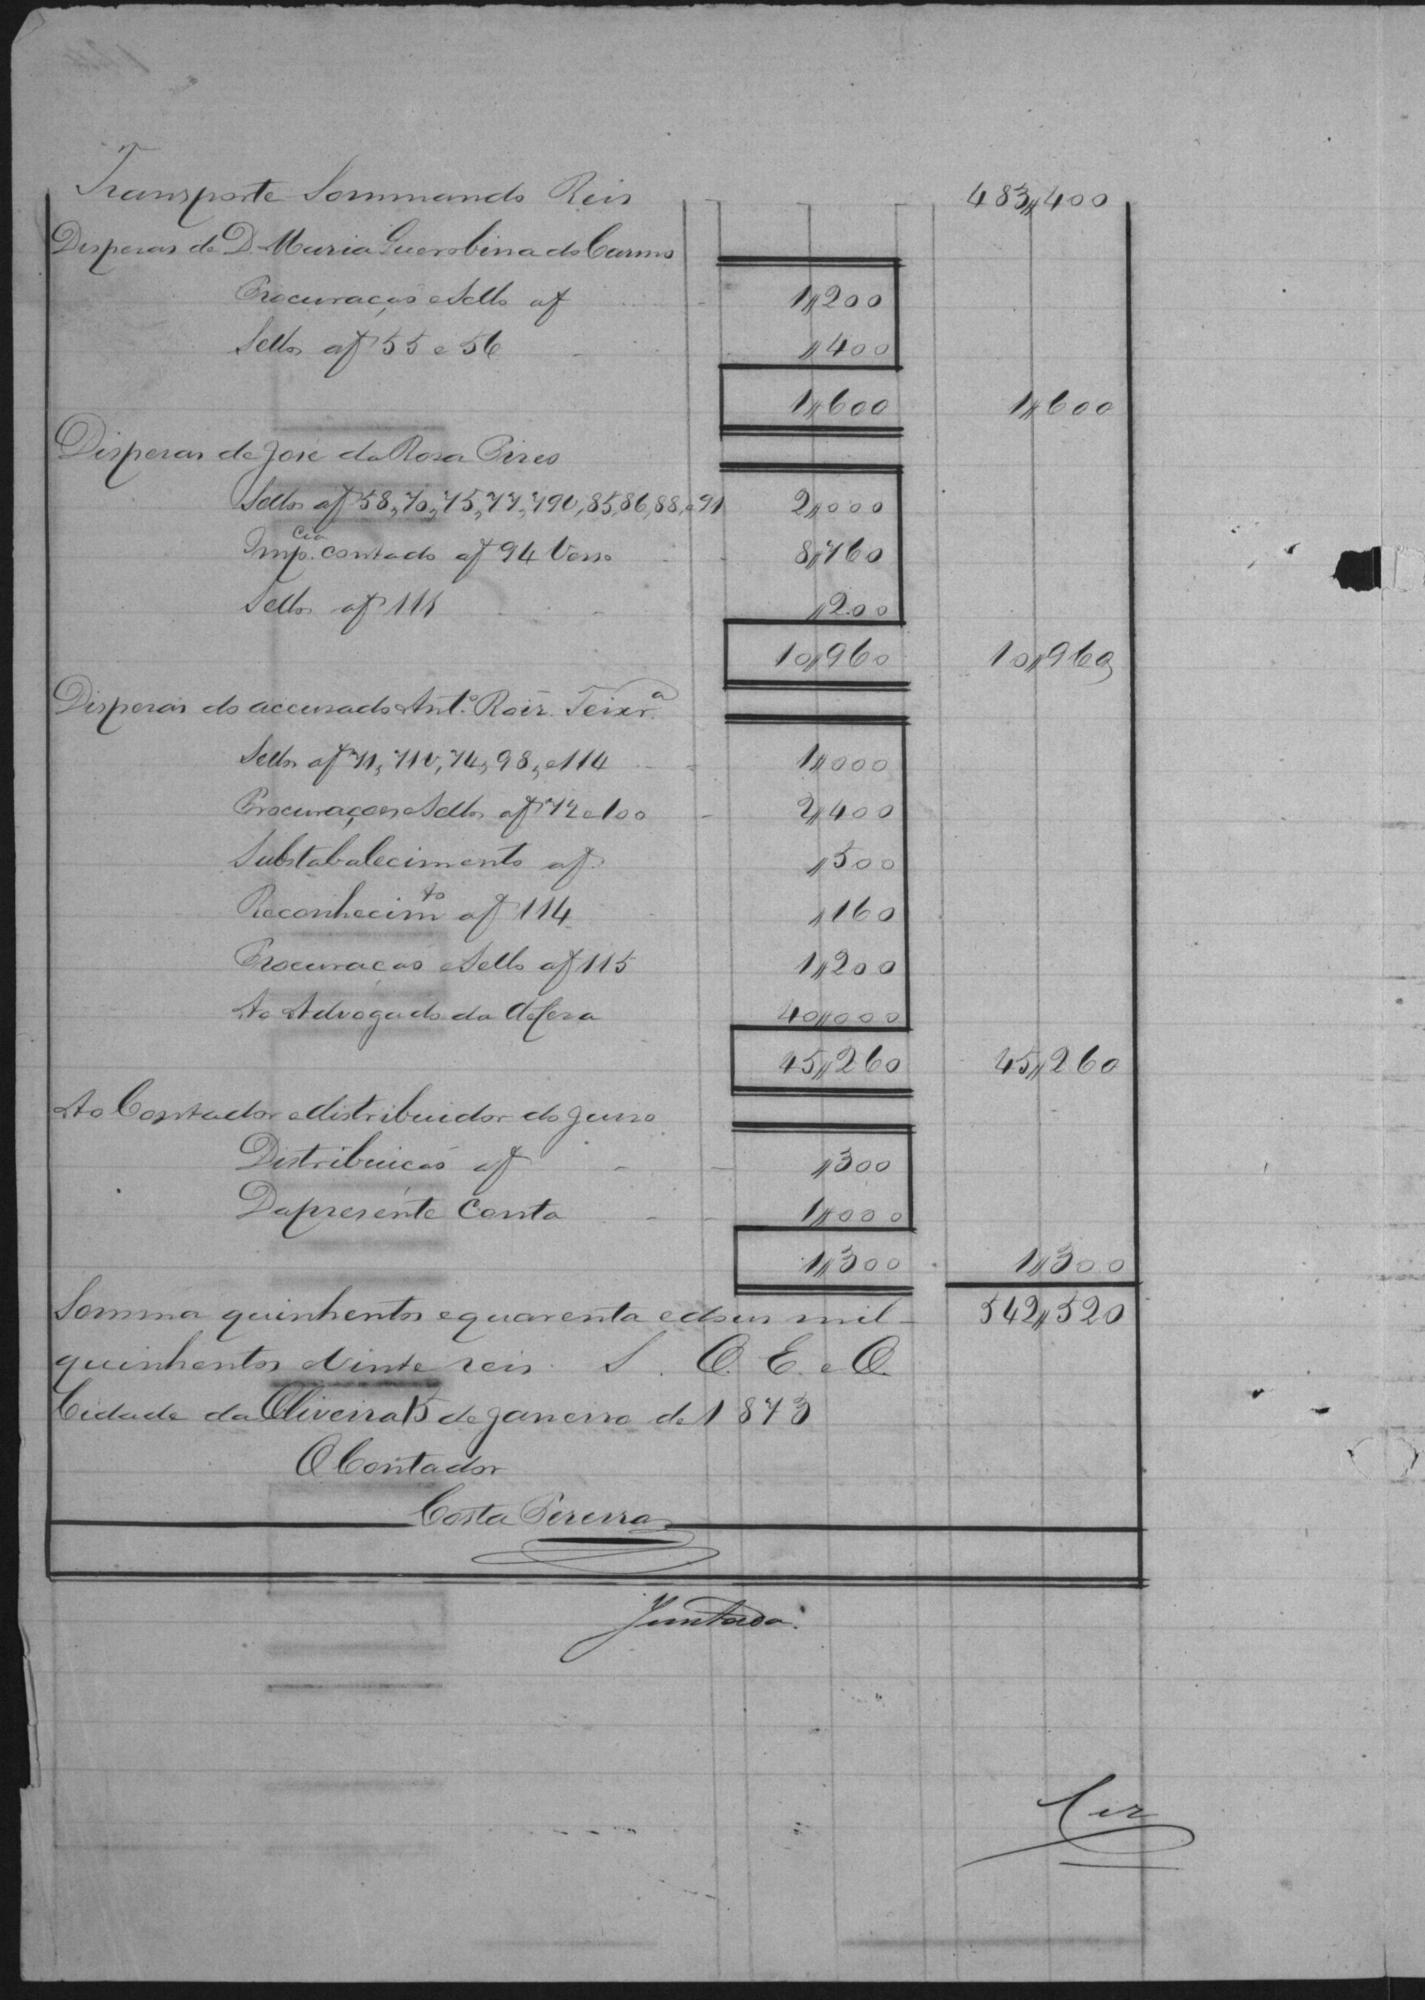 Transporte Sommando Reis 483,,400
Despesas de D. Maria Guerobina do Carmo
Procuração e Sello af 1,,200
Sellos af 55 e 56 ,,400
1,,600 1,,600
Despesas de José da Rosa Pires
Sellos af 58, 70, 75, 77, 79v, 85, 86, 88, e 91 2,,000
Imp.cia contada af 94 Verso 8,,760
Sellos af 111 ,,200
10,,960 10,,960
Despesas do accusado Ant.º Roiz. Teixr.ª
Sellos af 71, 71v, 74, 98, e 114 1,,000
Procurações e Sellos af 72 e 100 2,,400
Substabalecimento af ,,500
Reconhecimto af 114 ,,160
Procuração e Sello af 115 1,,200
Ao Advogado da defesa 40,,000
45,,260 45,,260
Ao Contador e distribuidor do juiso
Distribuição af ,,300
Da presente Conta 1,,000
1,,300 1,,300
Somma quinhentos e quarenta e dous mil 542,,520
quinhentos e vinte reis. S. O. E. e O.
Cidade da Oliveira 15 de Janeiro de 1873
O Contador
Costa Pereira
Juntada.